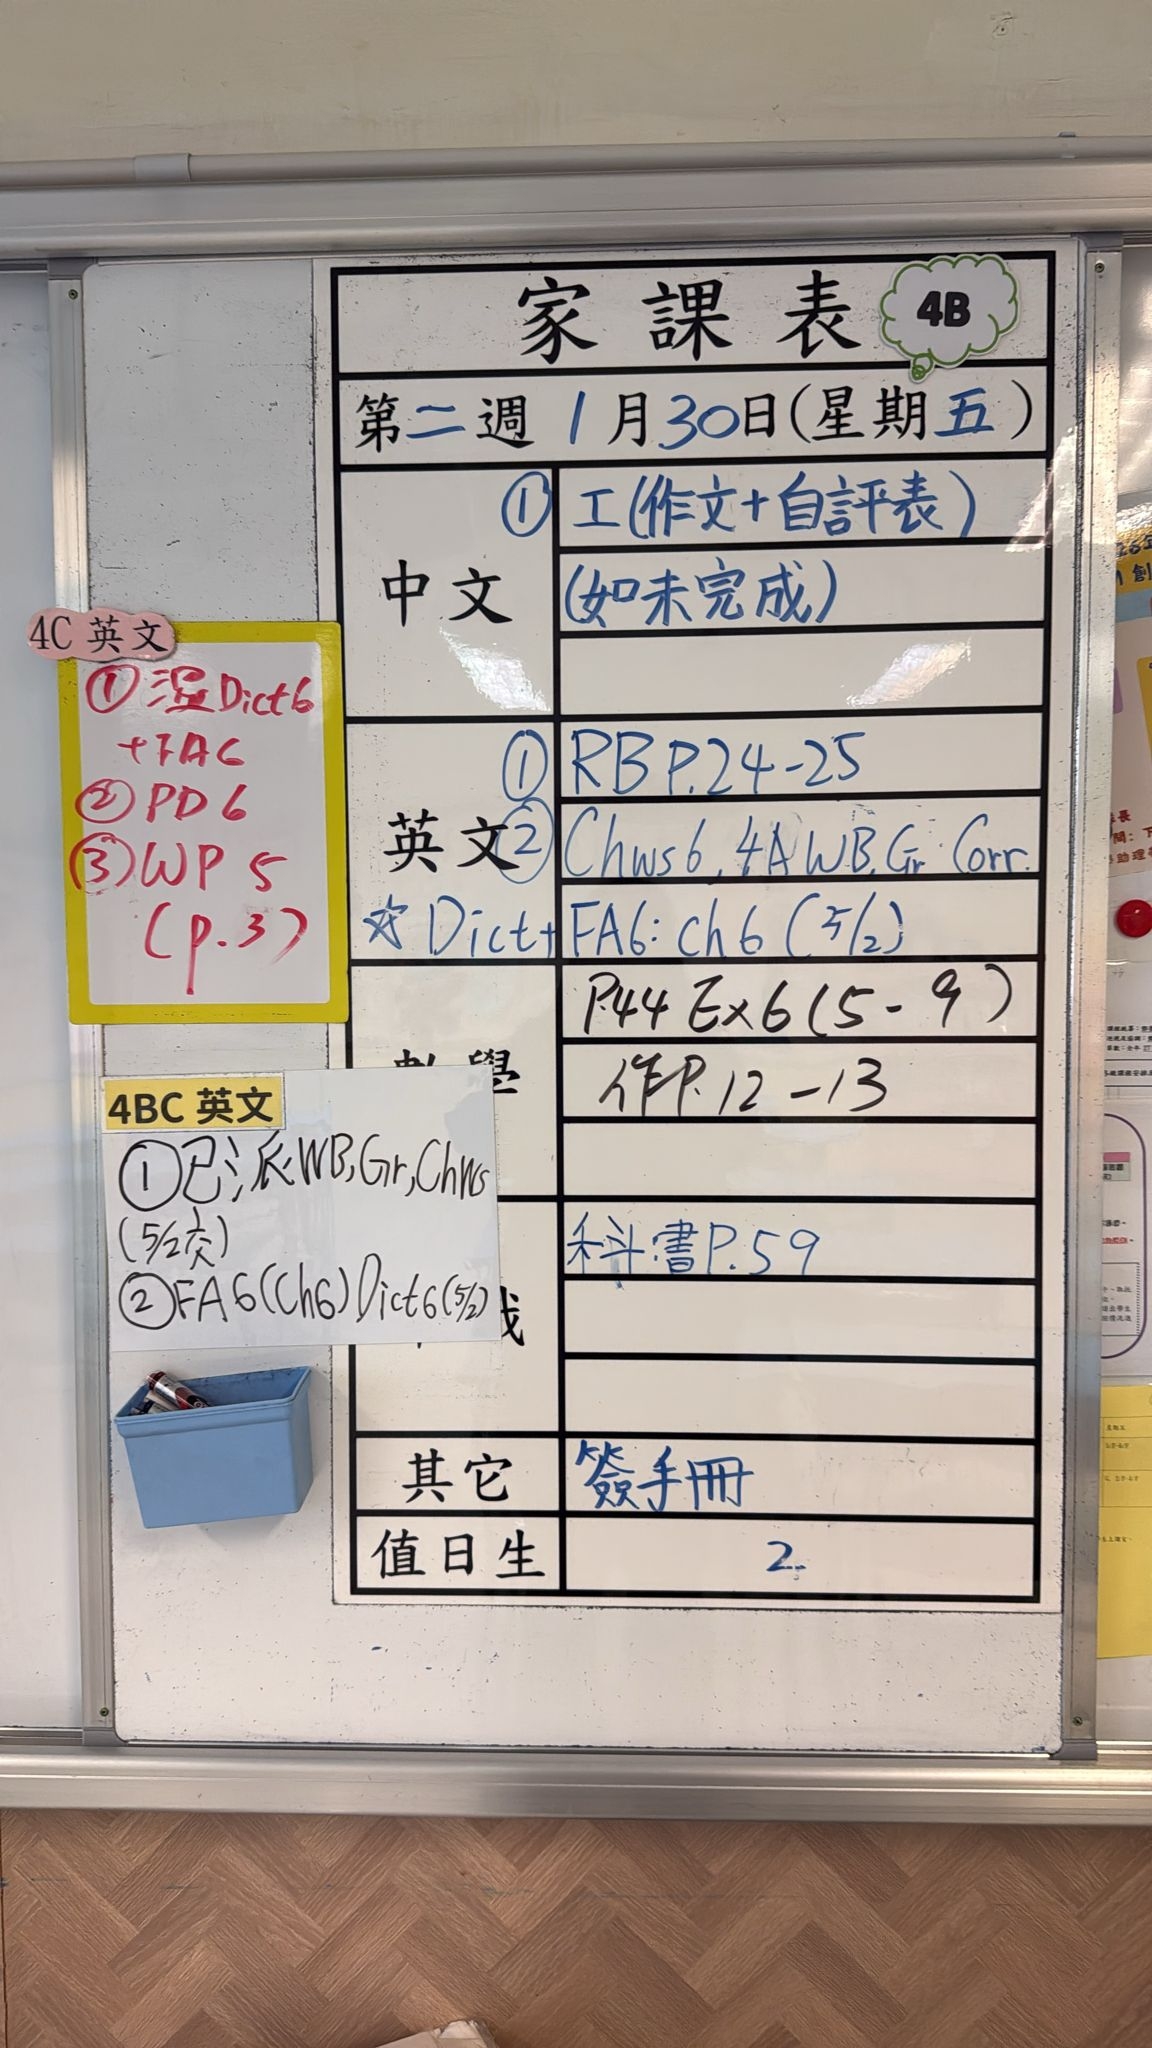 家課表 4B
第二週 1月30日(星期五)
中文
① 工(作文+自評表)
(如未完成)
英文
① RB P.24-25
② Chws6, 4A WB, Gr Corr.
☆ Dict+FA6: ch6 (5/2)
學
P.44 Ex6(5-9)
作P.12-13
科書P.59
其它 簽手冊
值日生 2
4C 英文
① 溫Dict6
+FA6
② PD6
③ WP5
(p.3)
4BC 英文
①已派WB,Gr,ChWs
(5/2交)
②FA6(Ch6)Dict6(5/2)